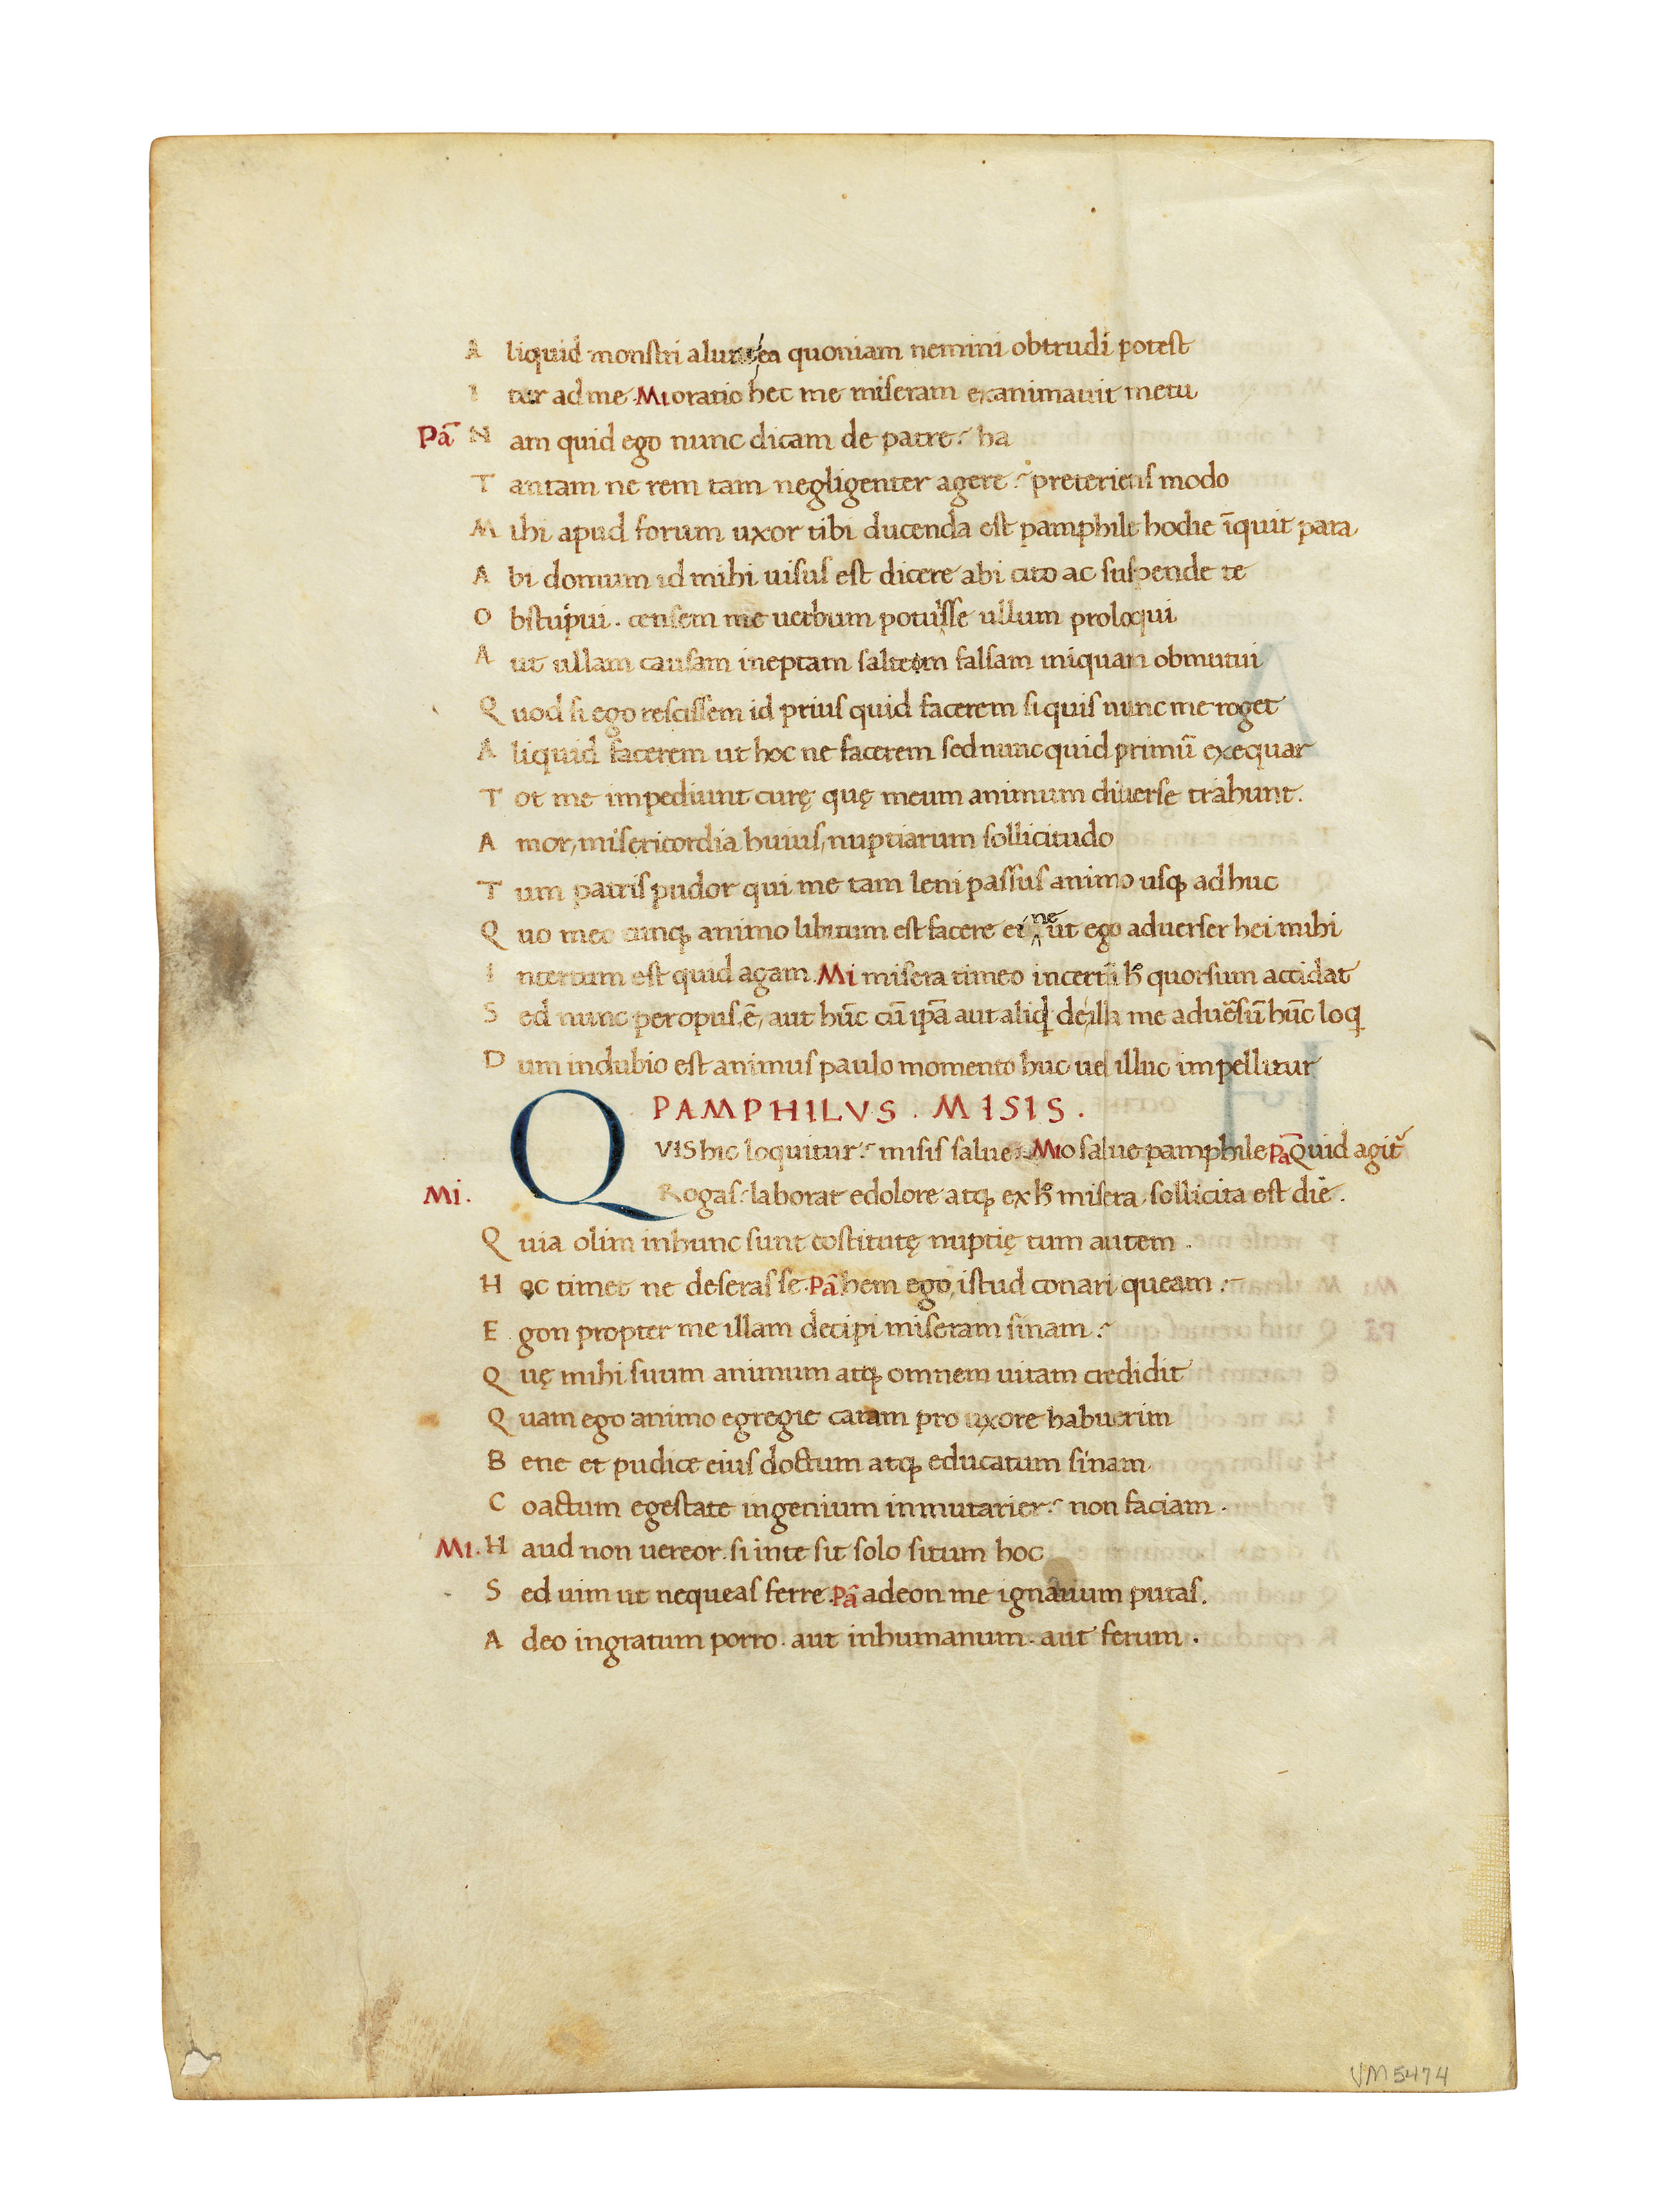 A liquid monstri alunt ea quoniam nemini obtrudi potest
I tur ad me. Mi oratio hec me miseram exanimauit metu
Pā N am quid ego nunc dicam de patre? ha
T antam ne rem tam negligenter agere? preteriens modo
M ihi apud forum uxor tibi ducenda est pamphile hodie īquit para
A bi domum id mihi uisus est dicere abi cito ac suspende te
O bstupui. censem me uerbum potuisse ullum proloqui
A ut ullam causam ineptam saltem falsam iniquam obmutui
Q uod si ego rescissem id prius quid facerem si quis nunc me roget
A liquid facerem ut hoc ne facerem sed nunc quid primū exequar
T ot me impediunt curę quę meum animum diuerse trahunt.
A mor, misericordia huius, nuptiarum sollicitudo
T um patris pudor qui me tam leni passus animo usqꝫ adhuc
Q uo meo cunqꝫ animo libitum est facere ei ne ut ego aduerser hei mihi
I ncertum est quid agam. Mi misera timeo incertū h̊ quorsum accidat
S ed nunc peropus ē, aut hūc cū ip̄a aut aliqd de illa me aduēsū hūc loq
D um indubio est animus paulo momento huc uel illuc impellitur
PAMPHILVS. MISIS.
QVIS hic loquitur? misis salue. Mi o salue pamphile Pā Quid agit
Mi. Rogas? laborat e dolore atqꝫ ex h̊ misera sollicita est die.
Q uia olim in hunc sunt cōstitutę nuptię tum autem.
H oc timet ne deseras se. Pā hem ego istud conari queam?
E gon propter me illam decipi miseram sinam?
Q uę mihi suum animum atqꝫ omnem uitam credidit
Q uam ego animo egregie caram pro uxore habuerim
B ene et pudice eius doctum atqꝫ educatum sinam
C oactum egestate ingenium inmutarier? non faciam.
Mi. H aud non uereor. si in te sit solo situm hoc
S ed uim ut nequeas ferre. Pā adeon me ignauum putas.
A deo ingratum porro. aut inhumanum. aut ferum.
VM5474